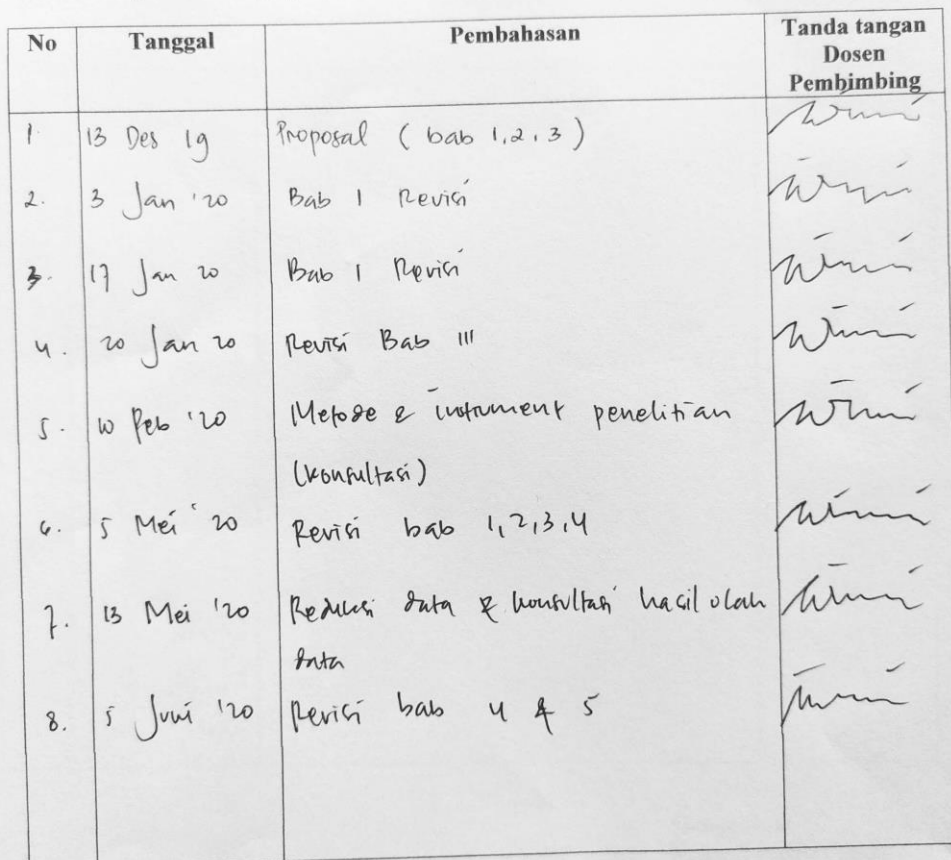 No Tanggal Pembahasan Tanda tangan
Dosen
Pembimbing
1. 13 Des 19 Proposal ( bab 1,2,3 )
2. 3 Jan '20 Bab 1 Revisi
3. 17 Jan 20 Bab 1 Revisi
4. 20 Jan 20 Revisi Bab III
5. 10 Feb '20 Metode & instrument penelitian
(konsultasi)
6. 5 Mei '20 Revisi bab 1,2,3,4
7. 13 Mei '20 Reduksi data & konsultasi hasil olah
data
8. 5 Juni '20 Revisi bab 4 & 5